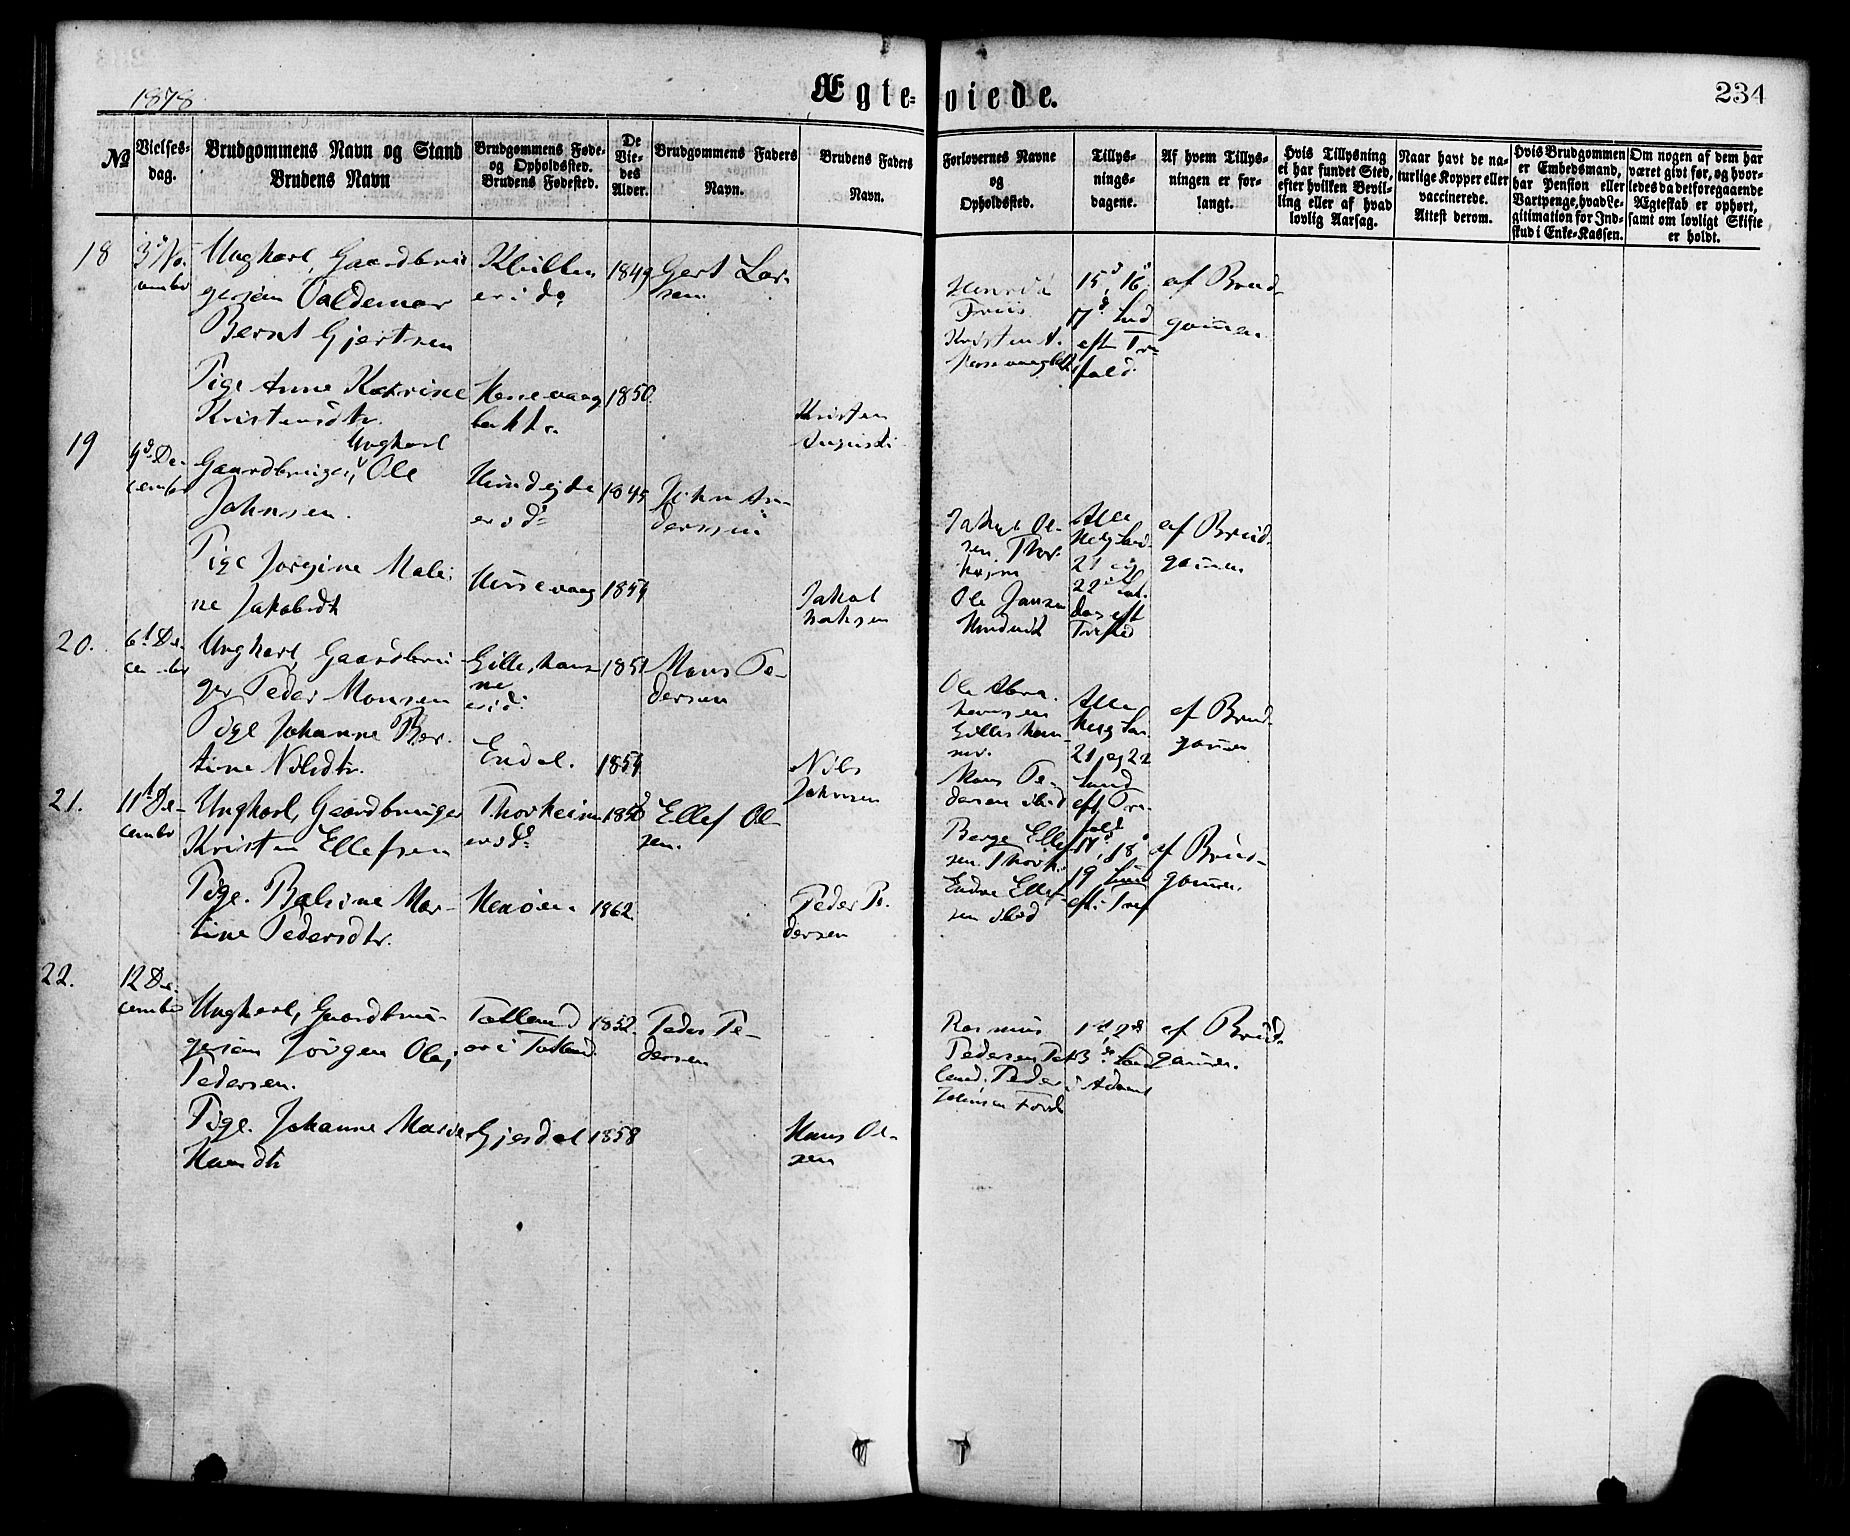 1878.
Ægte-
viede.
234
No
Vielses-
dag.
Brudgommens Navn og Stand
Brudens Navn
Brudgommens Føde-
og Opholdssted.
Brudens Fødested.
De
Vie-
des
Alder.
Brudgommens Faders
Navn.
Brudens Faders
Navn.
Forlovernes Navne
og
Opholdssted.
Tillys-
nings-
dagene.
Af hvem Tillys-
ningen er for-
langt.
Hvis Tillysning
ei har fundet Sted,
efter hvilken Bevil-
ling eller af hvad
lovlig Aarsag.
Naar havt de na-
turlige Kopper eller
vaccinerede.
Attest derom.
Hvis Brudgommen
er Embedsmand,
har Pension eller
Vartpenge, hvad Le-
gitimation for Ind-
skud i Enke-Kassen.
Om nogen af dem har
været gift før, og hvor-
ledes da det foregaaende
Ægteskab er ophørt,
samt om lovligt Skifte
er holdt.
18
3d No-
Ungkarl, Gaardbru-
gersøn Valdemar
Bernt Gjertsen
er i do
1849
Gert Lar-
sen.
Friis
Kristen A.
15d, 16d
17d Snd
eft Tre-
fold
af Brud-
gommen
Pige Anne Katrine
Kristensdtr.
1850
Kristen
19
9d De-
cember
Ungkarl
Gaardbruger, Ole
Johnsen.
1845
John An-
derssen
Jakob Ol-
sen Thor-
heim
Ole Jansen
Alle
Helg Snd.
21 og
22d
eft
Trefold
af Brud-
gommen
Pige Jorgine Mali-
ne Jakobsdtr
1854
Jakob
20.
6d De-
cember
Ungkarl, Gaardbru-
ger Peder Monsen
Gillesham-
ner
1851
Mons Pe-
dersen
Ole Abra-
hamsen
Gillesham-
ner.
Mons Pe-
dersen ibid
Alle
Helg
21 og 22
Snd
eft Tre-
fold
af Brud-
gommen
Pige Johanne Ber-
tine Nilsdtr.
Endal.
1854
Nils
Johnsen
21.
11d De-
cember
Ungkarl, Gaardbruger
Kristen Ellefsen
Thorheim
Ellef Ol-
sen.
Berge Ellef-
sen Thorh.
Endre Ellef-
sen ibid
17d, 18d
19 Snd
eft. Tref
af Brud-
gommen.
Pige. Balvine Mar-
tine Pedersdtr.
1862
Peder Pe-
dersen
22.
12 De-
cember
Ungkarl, Gaardbru-
gersøn Jørgen Olaj
Pedersen.
Tatland
er i Tatland
1852.
Peder Pe-
dersen
Rasmus
Pedersen Tat-
land, Peder
Johnsen
1st, 2d
3de Snd
i Advent
af Brud-
gommen.
Pige. Johanne Marie
Hansdtr
Gjesdal
1858
Hans Ol-
sen